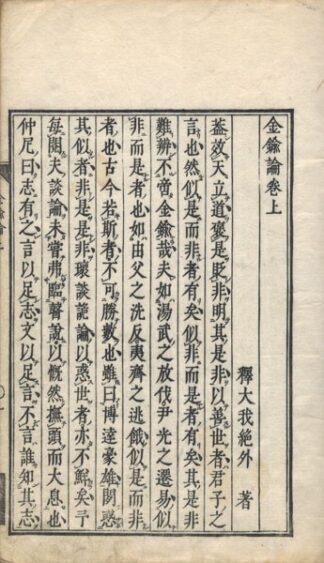 金鍮論卷上
釋大我絶外 著
蓋效天立道褒是貶非明其是非以善世者君子之
言也然似是而非者有矣似非而是者有矣其是非
難辨不啻金鍮哉夫如湯武之放伐伊尹光之遷易似
非而是者也如由父之洗反夷齊之逃餓似是而非
者也古今若斯者不可勝數也雖曰博達豪雄閎惑
其似者非是是非瓌談詭論以惑世者亦不鮮矣予
每閱夫談論未甞弗臨聲說以慨然撫頭而大息也
仲尼曰志有之言以足志文以足言不言誰知其志